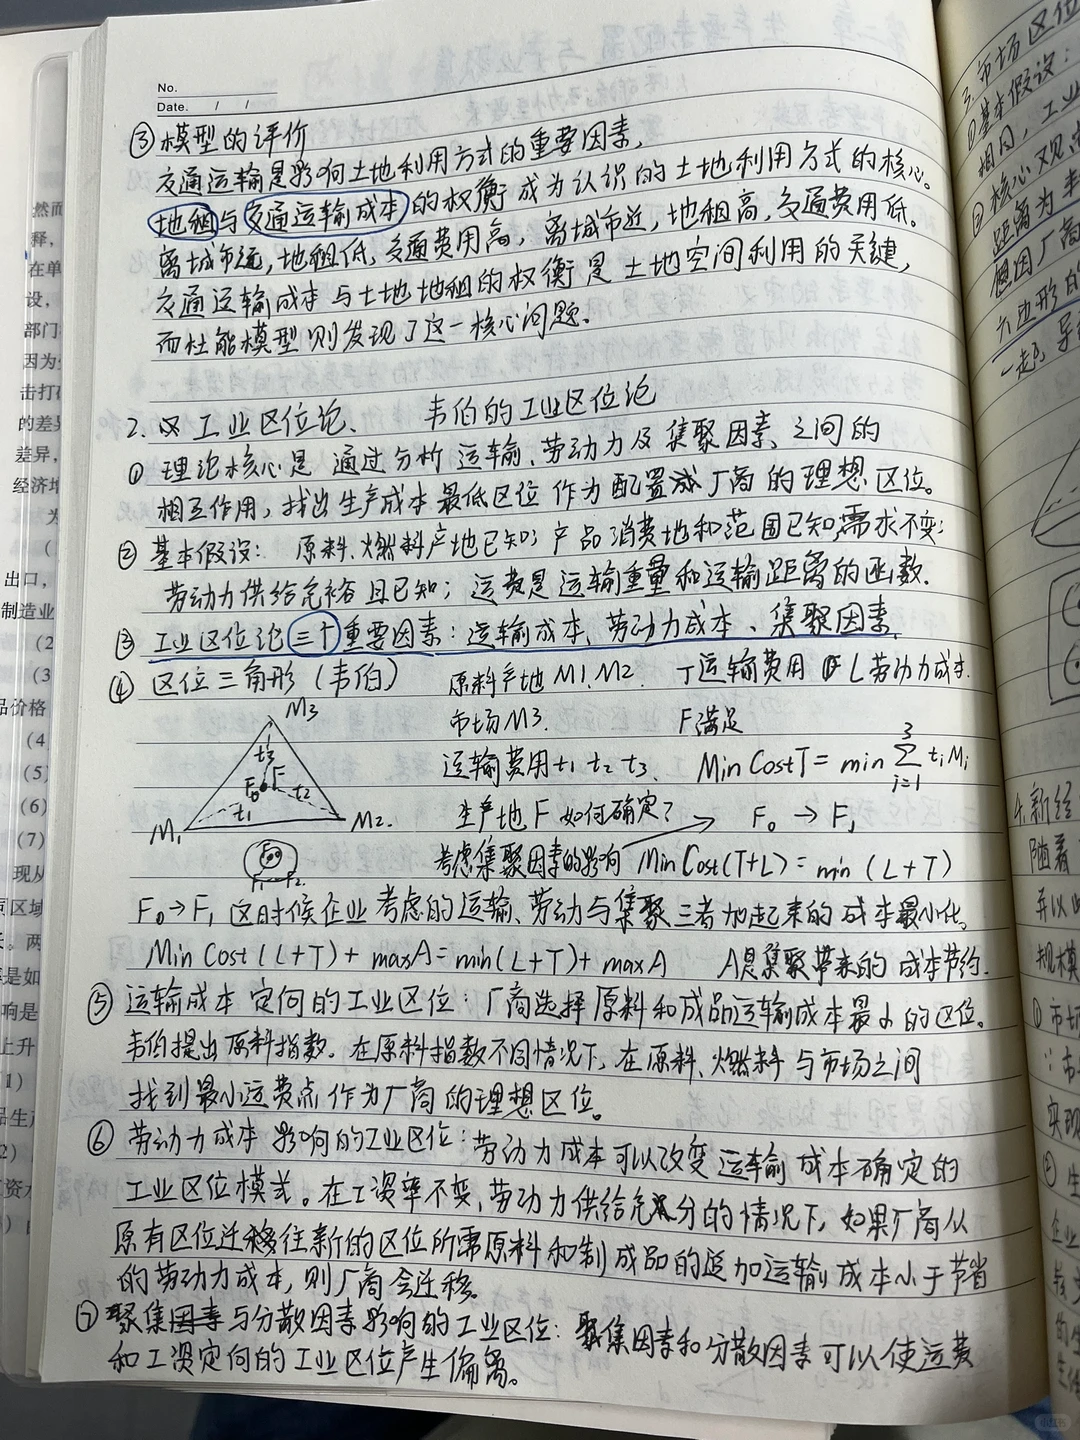 No.
Date. / /
③模型的评价
交通运输是影响土地利用方式的重要因素,
地租与交通运输成本的权衡成为认识的土地利用方式的核心。
离城市远,地租低,交通费用高,离城市近,地租高,交通费用低。
交通运输成本与土地地租的权衡是土地空间利用的关键,
而杜能模型则发现了这一核心问题。
2. 工业区位论、 韦伯的工业区位论
① 理论核心是 通过分析 运输、劳动力及集聚因素 之间的
相互作用,找出生产成本最低区位 作为配置 厂商的理想区位。
② 基本假设: 原料、燃料产地已知;产品消费地和范围已知,需求不变;
劳动力供给充裕且已知;运费是运输重量和运输距离的函数.
③ 工业区位论三个重要因素:运输成本、劳动力成本、集聚因素.
④ 区位三角形(韦伯) 原料产地 M1.M2. T运输费用 L劳动力成本.
市场M3. F满足
运输费用t1 t2 t3. Min CostT = min 3∑i=1 tiMi
生产地F如何确定? F0 → F1
考虑集聚因素的影响 Min Cost(T+L) = min (L+T)
M3
t3
F
F0
t2
t1
M1
M2.
F1 F2
F0→F1 这时候企业考虑的运输、劳动与集聚三者加起来的成本最小化.
Min Cost (L+T) + maxA = min(L+T) + maxA A是集聚带来的成本节约.
⑤ 运输成本定向的工业区位:厂商选择原料和成品运输成本最小的区位。
韦伯提出原料指数.在原料指数不同情况下,在原料、燃料与市场之间
找到最小运费点作为厂商的理想区位。
⑥ 劳动力成本影响的工业区位:劳动力成本可以改变运输成本确定的
工业区位模式。在工资率不变、劳动力供给充分的情况下,如果厂商从
原有区位迁移往新的区位所需原料和制成品的追加运输成本小于节省
的劳动力成本,则厂商会迁移.
⑦ 聚集因素与分散因素影响的工业区位:聚集因素和分散因素可以使运费
和工资定向的工业区位产生偏离。
3.市场区位
①基本假设:
相同,工业
② 核心观点
距离为半
但因厂商
六边形的
一起,导
4.新经
随着
并以
规模
① 市场
∵市
实现
② 生
企业
然而
释,
在单
设,
部门
因为
击打
的差异
差异,
经济增
为
出口,
制造业
(2
(3
品价格
(4
(5)
(6)
(7)
现从
区域
。两
是如
响是
上升
1)
品生产
2)
资本
小红书